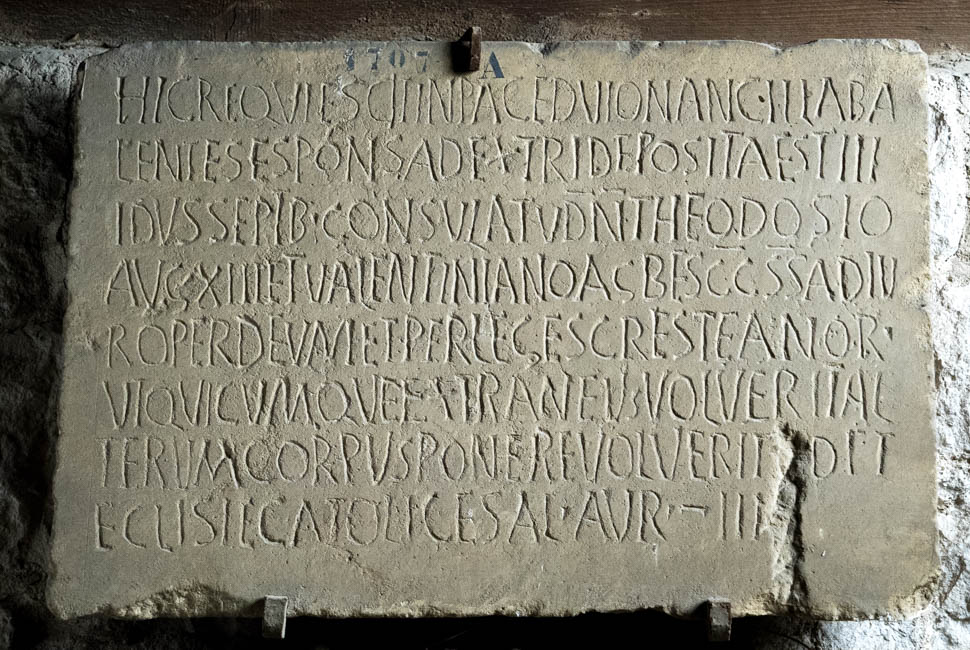 1707 A
HICREQVIESCITINPACEDVIONANCILLABA
LENTESESPONSADEXTRIDEPOSITAESTIIII
IDVSSEPTB·CONSVLATVDNTHEODOSIO
AVGXIIIETVALENTINIANOACBESCCSSADIV
ROPERDEVMETPERLEGESCRESTEANOR·
VIQVICVMQVEEXTRANEVSVOLVERITAL
TERVMCORPVSPONEREVOLVERITDET
ECLISIECATOLICESAL·AVR·III